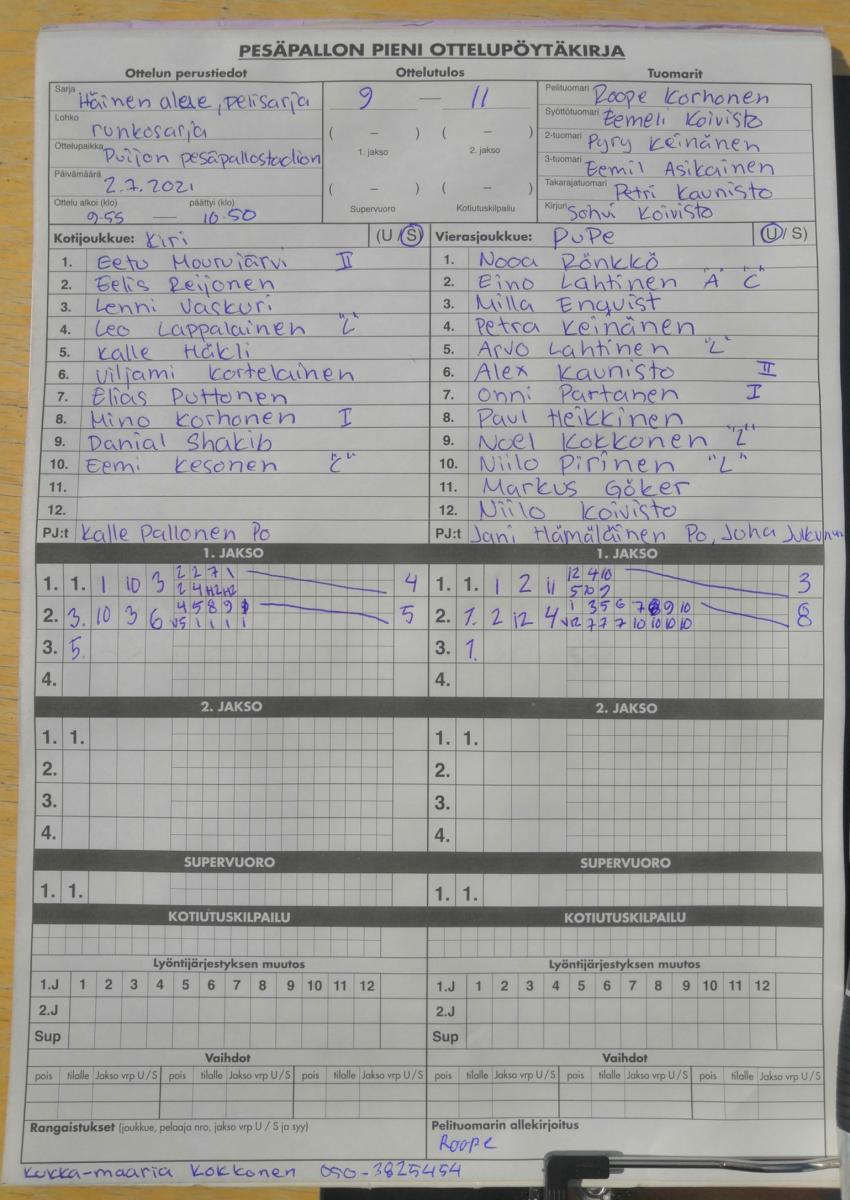 PESÄPALLON PIENI OTTELUPÖYTÄKIRJA
Ottelun perustiedot
Sarja Häinen alue, pelisarja
Lohko runkosarja
Ottelupaikka Puijon pesäpallostadion
Päivämäärä 2.7.2021
Ottelu alkoi (klo) päättyi (klo)
9.55 — 10.50
Ottelutulos
9 — 11
( – ) ( – )
1. jakso 2. jakso
( – ) ( – )
Supervuoro Kotiutuskilpailu
Tuomarit
Pelituomari Roope Korhonen
Syöttötuomari Eemeli Koivisto
2-tuomari Pyry Keinänen
3-tuomari Eemil Asikainen
Takarajatuomari Petri Kaunisto
Kirjuri Sohvi Koivisto
Kotijoukkue: Kiri (U/S)
1. Eetu Mourujärvi II
2. Eelis Reijonen
3. Lenni Vaskuri
4. Leo Lappalainen "L"
5. Kalle Häkli
6. Viljami Kortelainen
7. Elias Puttonen
8. Mino Korhonen I
9. Danial Shakib
10. Eemi Kesonen "C"
11.
12.
PJ:t Kalle Pallonen Po
Vierasjoukkue: PuPe (U/S)
1. Nooa Rönkkö
2. Eino Lahtinen "A" "C"
3. Milla Enqvist
4. Petra Keinänen
5. Arvo Lahtinen "L"
6. Alex Kaunisto II
7. Onni Partanen I
8. Paul Heikkinen
9. Noel Kokkonen "L"
10. Niilo Pirinen "L"
11. Markus Göker
12. Niilo Koivisto
PJ:t Jani Hämäläinen Po, Juha
1. JAKSO
1. 1. 1 10 3 2 2 7 1 4
2 4 H2 H2
2. 3. 10 3 6 4 5 8 9 5
V5 1 1 1 1
3. 5.
4.
1. JAKSO
1. 1. 1 2 11 12 4 10 3
2. 1. 2 12 4 1 3 5 6 7 8 9 10 8
V12 7 7 7 10 10 10 10
3. 1.
4.
2. JAKSO
1. 1.
2.
3.
4.
2. JAKSO
1. 1.
2.
3.
4.
SUPERVUORO
1. 1.
SUPERVUORO
1. 1.
KOTIUTUSKILPAILU
KOTIUTUSKILPAILU
Lyöntijärjestyksen muutos
1.J 1 2 3 4 5 6 7 8 9 10 11 12
2.J
Sup
Lyöntijärjestyksen muutos
1.J 1 2 3 4 5 6 7 8 9 10 11 12
2.J
Sup
Vaihdot
pois tilalle Jakso vrp U/S pois tilalle Jakso vrp U/S pois tilalle Jakso vrp U/S
Vaihdot
pois tilalle Jakso vrp U/S pois tilalle Jakso vrp U/S pois tilalle Jakso vrp U/S
Rangaistukset (joukkue, pelaaja nro, jakso vrp U / S ja syy)
Pelituomarin allekirjoitus
Roope
Kukka-maaria Kokkonen 050-3825454